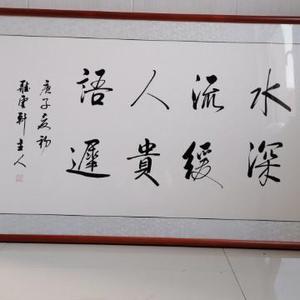 水深
流緩
人貴
語遲
庚子夏初
軒主人